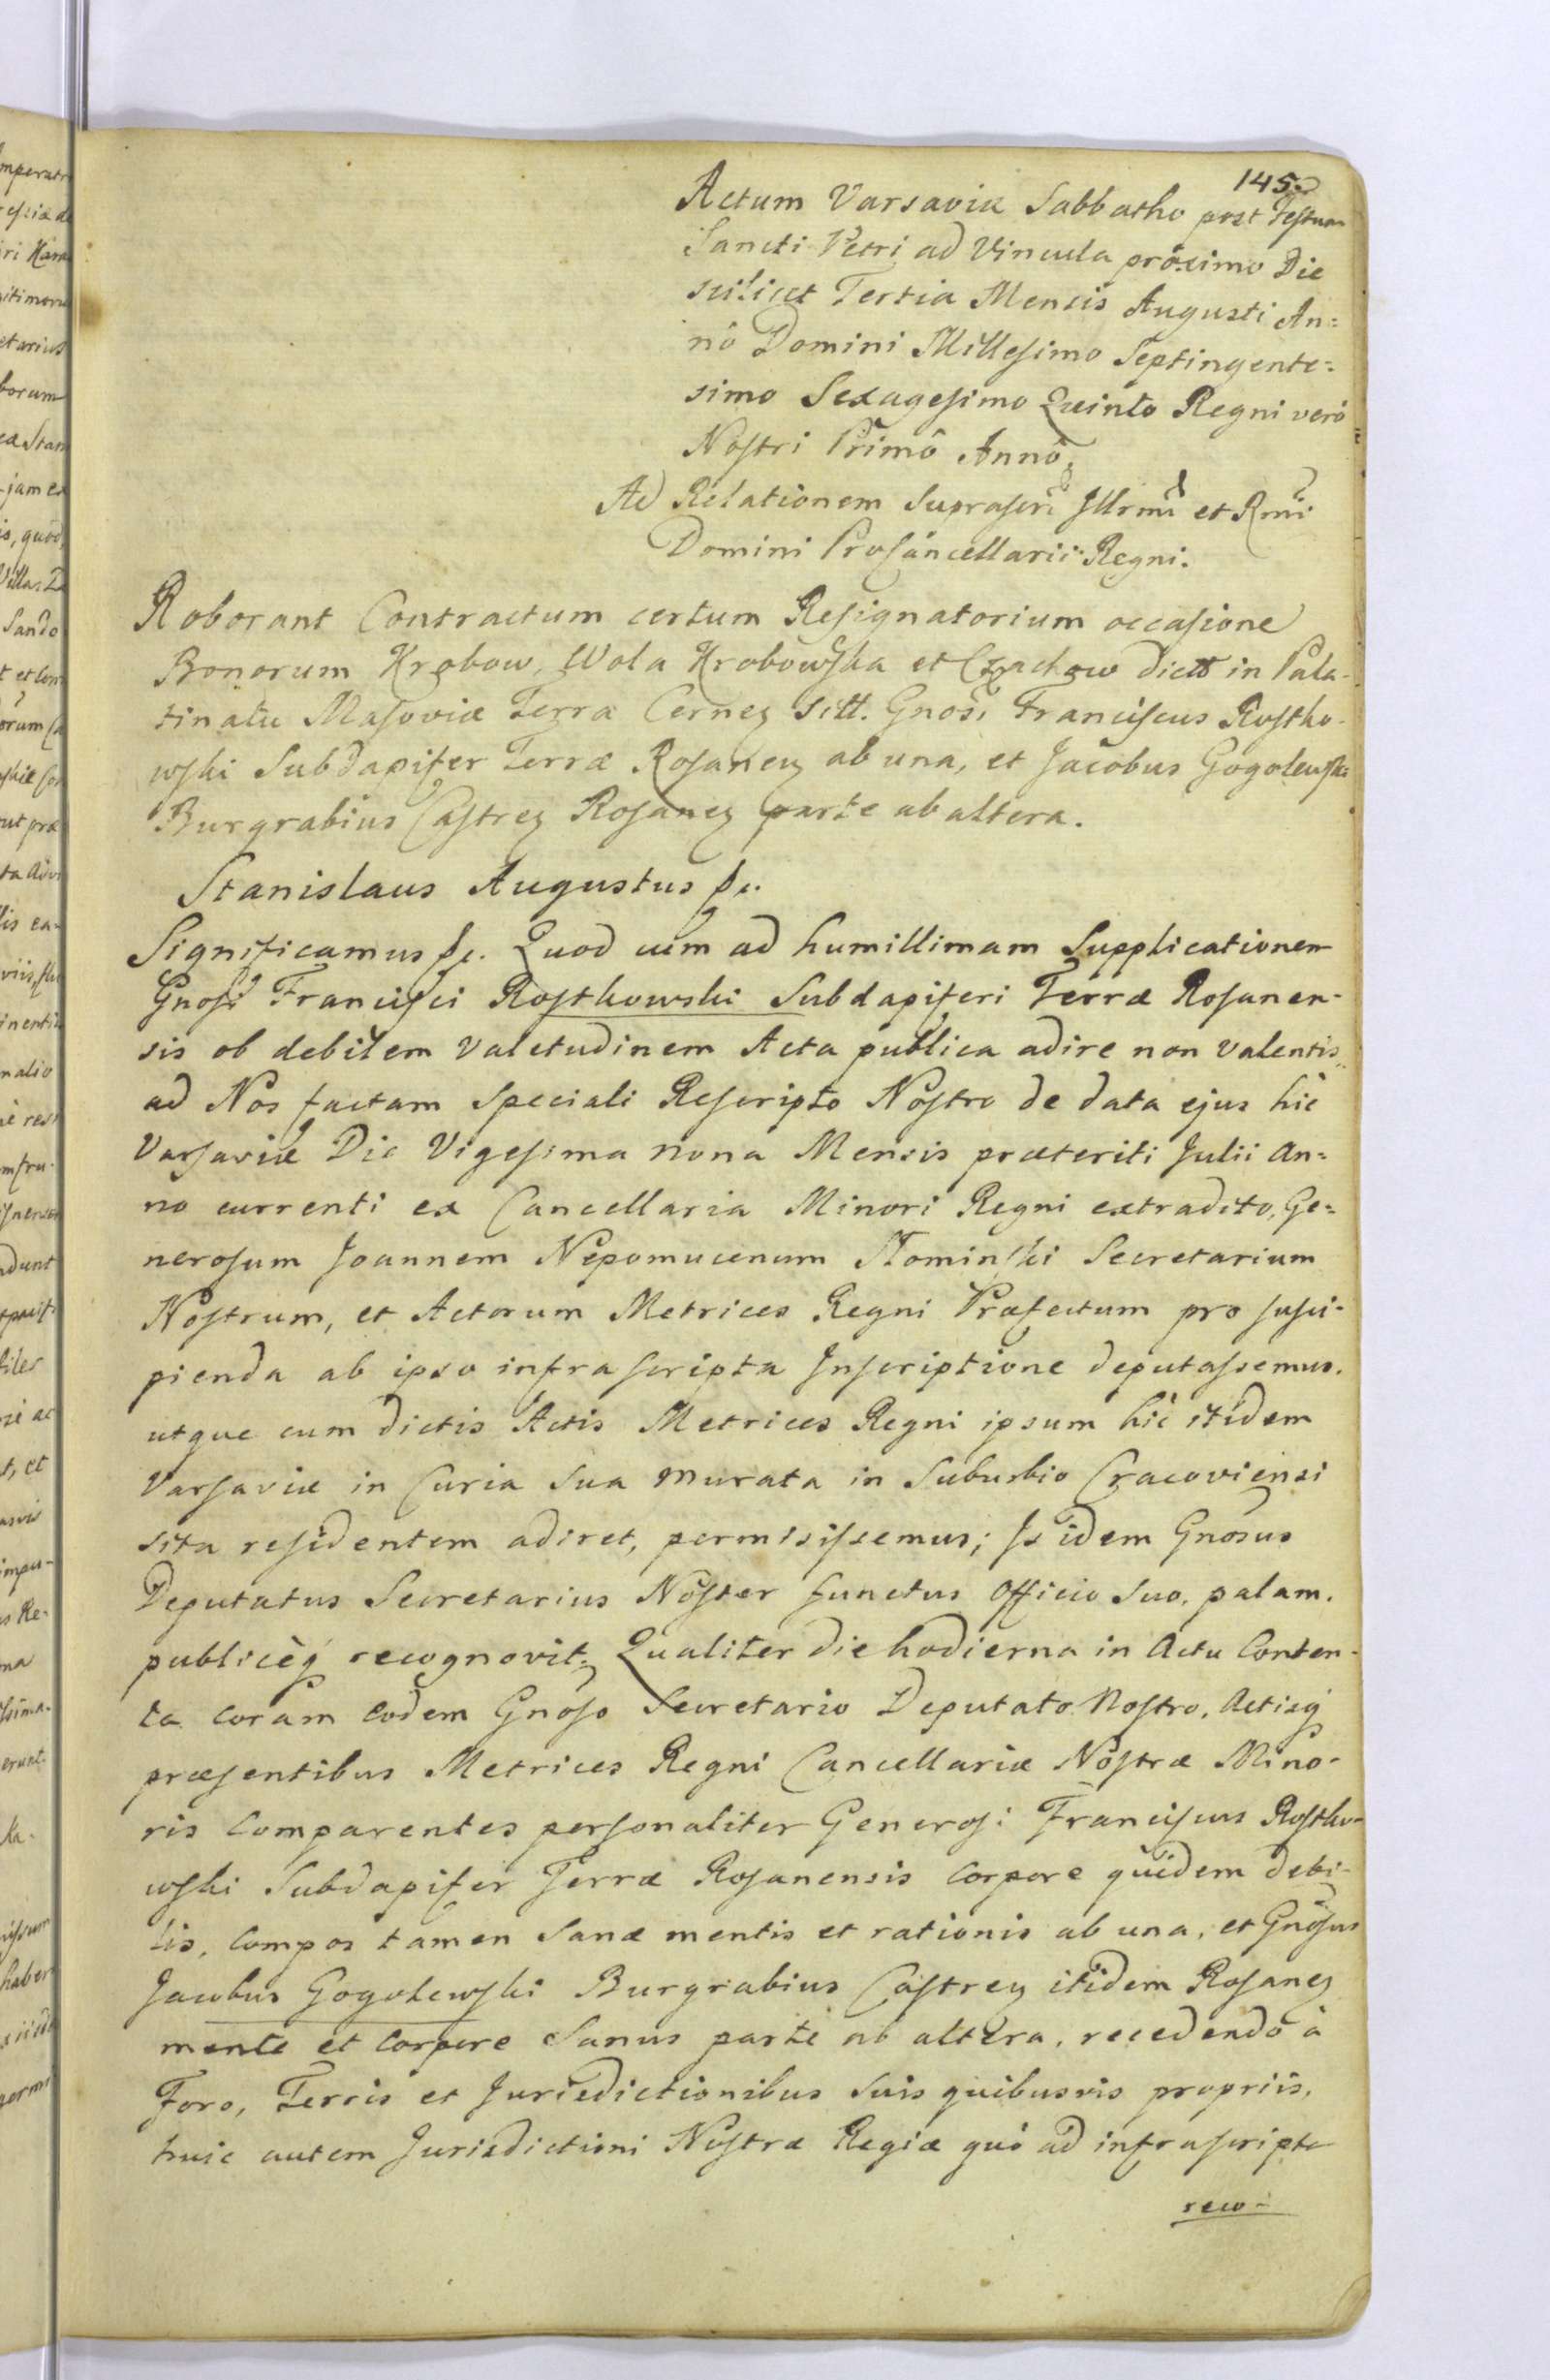 145.
Actum Varsaviæ Sabbatho post Festum
Sancti Petri ad Vincula próximo Die
scilicet Tertia Mensis Augusti An=
nô Domini Millesimo Septingente=
simo Sexagesimo Quinto Regni verò
Nostri Primô Annô.
Ad Relationem Suprascri Illrmi et Rmi
Domini ProCancellarii Regni.
Roborant Contractum certum Resignatorium occasione
Bonorum Hrobow, Wola Hrobowska et Czachow dictt in Pala-
tinatu Masoviæ Terra Cernen sitt. Gnosi Franciscus Rostko-
wski Subdapifer Terræ Rosanen ab una, et Jacobus Gogolewski
Burgrabius Castren Rosanen parte ab altera.
Stanislaus Augustus &c.
Significamus &c. Quod cum ad humillimam Supplicationem
Gnosi Francisci Rostkowski Subdapiferi Terræ Rosanen-
sis ob debilem valetudinem Acta publica adire non valentis
ad Nos factam Speciali Rescripto Nostro de data ejus hic
Varsaviæ Die Vigesima nona Mensis præteriti Julii An=
no currenti ex Cancellaria Minori Regni extradito, Ge=
nerosum Joannem Nepomucenum Słominski Secretarium
Nostrum, et Actorum Metrices Regni Præfectum pro susci-
pienda ab ipso infrascripta Inscriptione deputassemus.
utque cum dictis Actis Metrices Regni ipsum hic itidem
Varsaviæ in Curia sua murata in Suburbio Cracoviensi
sita residentem adiret, permisissemus; Is idem Gnosus
Deputatus Secretarius Noster functus Officio Suo, palam.
publicèq recognovit. Qualiter die hodierna in Actu Conten-
ta coram eodem Gnoso Secretario Deputato Nostro, Actisq
præsentibus Metrices Regni Cancellariæ Nostræ Mino-
ris Comparentes personaliter Generosi Franciscus Rostko-
wski Subdapifer Terræ Rosanensis Corpore quidem debi-
lis, Compos tamen Sanæ mentis et rationis ab una, et Gnosus
Jacobus Gogolewski Burgrabius Castren itidem Rosanen
mente et Corpore Sanus parte ab altera, recedendo à
Foro, Terris et Jurisdictionibus Suis quibusvis propriis,
huic autem Jurisdictioni Nostræ Regiæ quò ad infrascripta
reco-